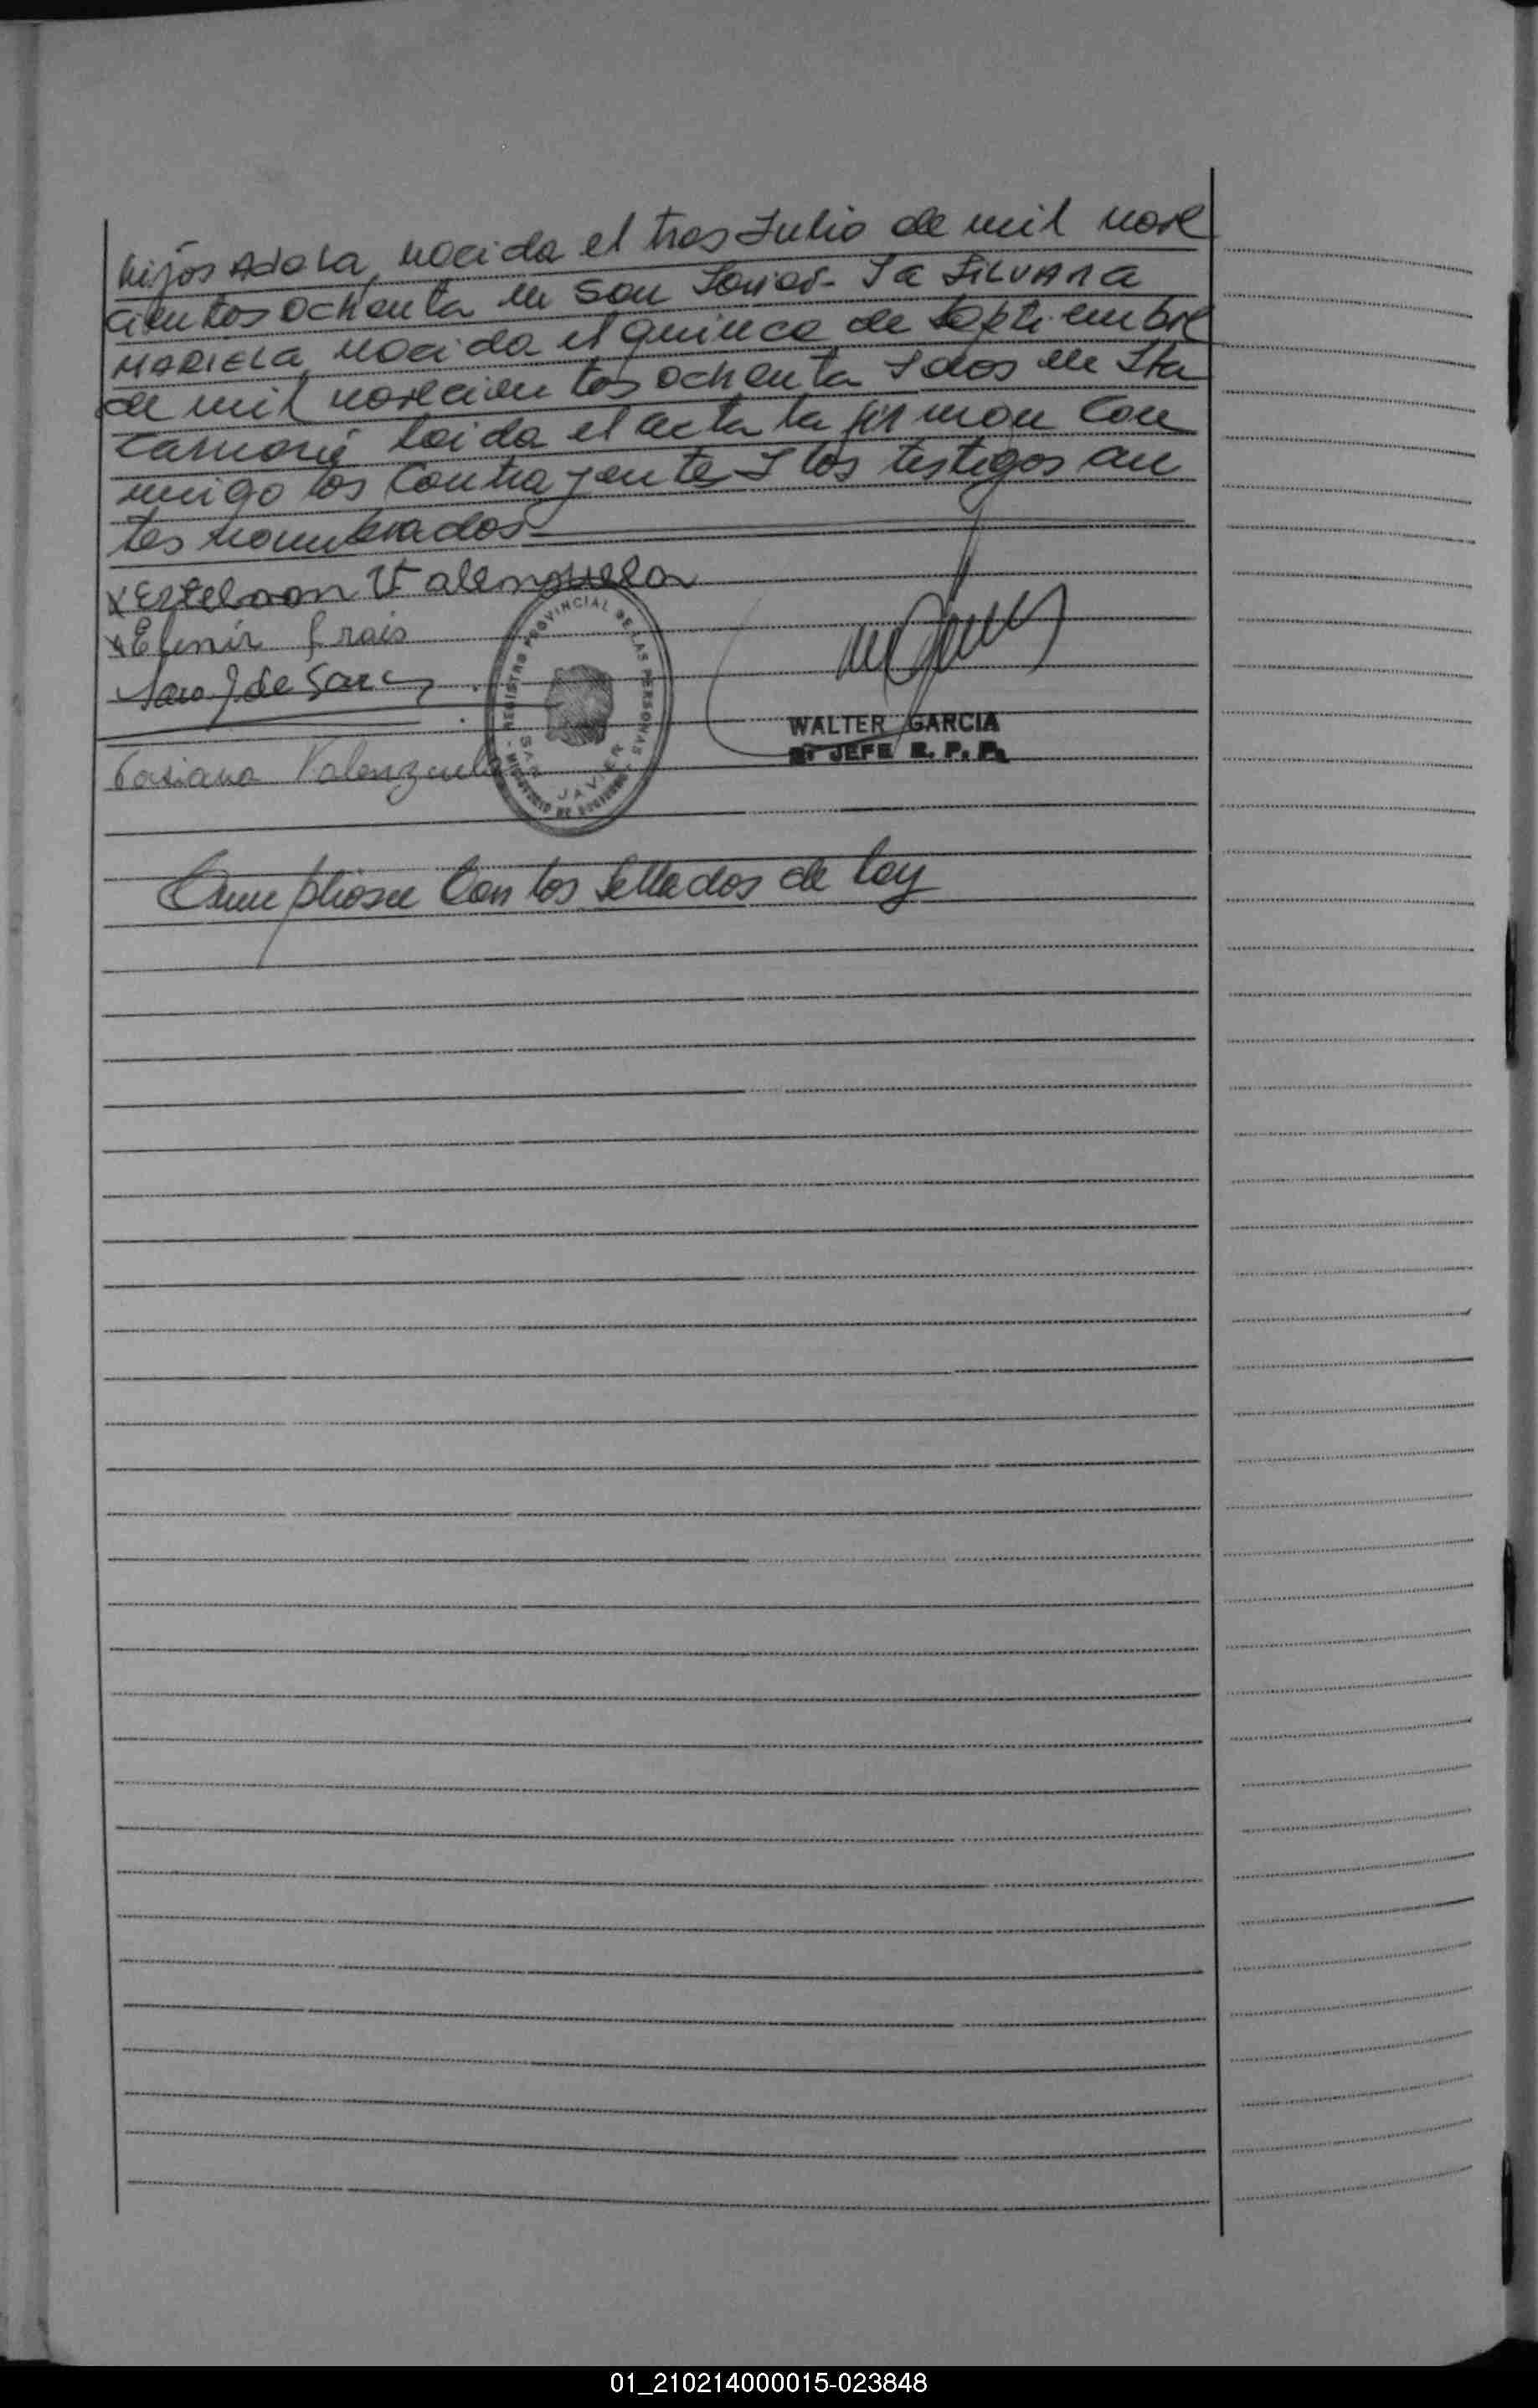 hijos Adela, nacida el tres Julio de mil nove
cientos ochenta en San Javier - Ja SILVANA
MARIELA nacida el quince de septiembre
de mil novecientos ochenta J dos en Ita
caruaré leida el acta la firman con
migo los contrayentes J los testigos an
tes nombrados
x Esteban Valenzuela
x Elenir
WALTER GARCIA
JEFE R. P. P.
Valenzuela
REGISTRO PROVINCIAL DE LAS PERSONAS
SAN JAVIER
MINISTERIO DE GOBIERNO
Cumpliose con los sellados de ley
01_210214000015-023848